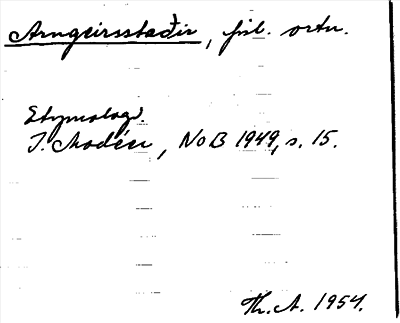 Arngeirsstaðir, fisl. ortn.
Etymologi.
I. Modéer, NoB 1949, s. 15.
Th. A. 1954.